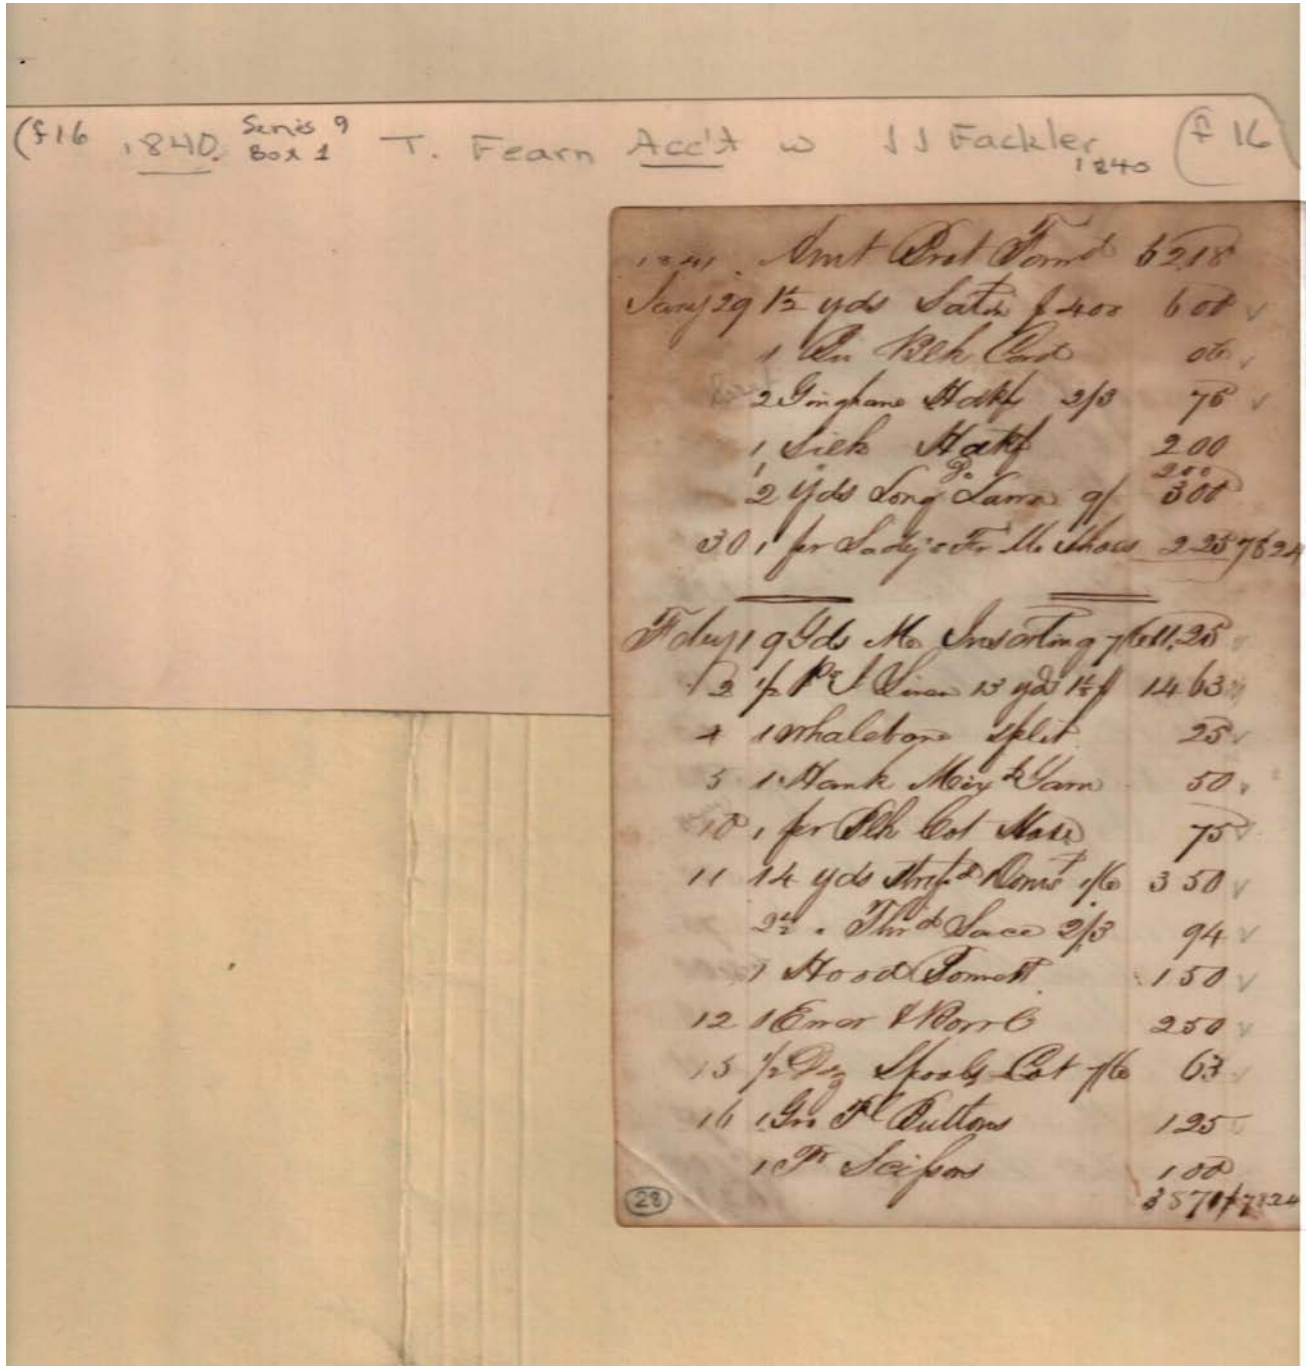 (f16 1840. Series 9 Box 1 T. Fearn Acc't w J J Fackler 1840 (f 16
1841. Amt Brot Forwd 6218
Jany 29 1½ yds Satin f 400 600
1 Blk Cord 06
2 Gingham Hdkf 2/3 75
1 Silk Hdkf 200
1 " Do 200
2 Yds Long Lawn 9/ 300
30 1 pr Lady's Mo Shoes 225 7824
Feby 1 9 Yds Mo Inserting 7/6 11.25
2 ½ Ps I Linen 13 yds 1463
4 1 Whalebone split 25
5 1 Hank Mixd Yarn 50
10 1 pr Blk Cot Hose 75
11 14 yds Stripd Domst 1/6 350
2½ " Thrd Lace 2/3 94
1 Hood Bonnett 150
12 1 250
15 ½ Dz Spools Cot 7/6 63
16 1 Gro Pl Buttons 125
1 Pr Scissors 100
3870 7824
28